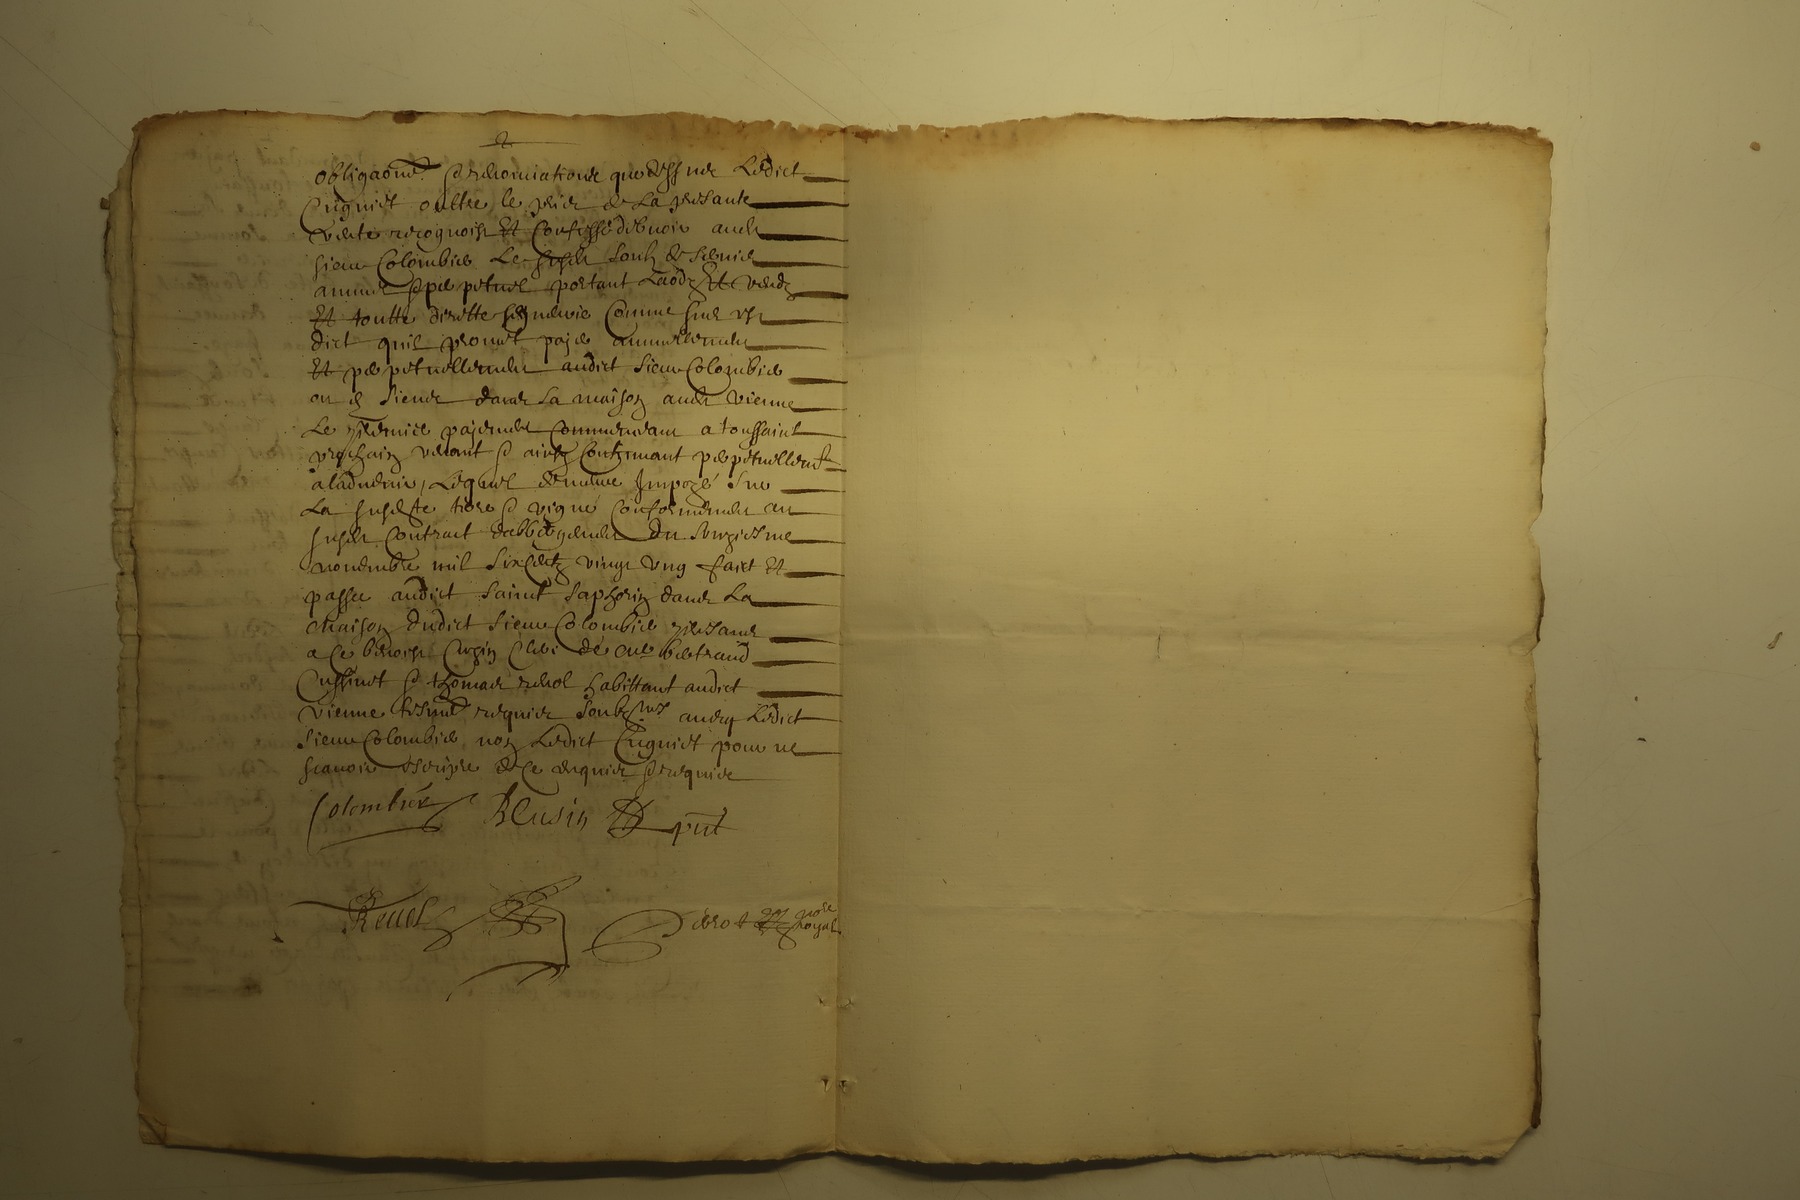 obligaons et renonciations que dessus Ledict
Cugniet oultre le prix de La presante
vente recognoist Et Confesse debvoir audt
sieur Colombier Le susdt soulz de servis
annuel et perpetuel portant Laodz Et vendz
Et toutte directte seigneurie Comme sus est
dict quil promet payer annuellement
Et perpetuellement audict sieur Colombier
ou es siens dans sa maison audt vienne
Le premier payement Commensant a toussaint
prochain venant et ainsy Continuant perpetuellemt
aladvenir, Lequel demeure Impozé sur
La susdite terre et vigne Conformement au
susdt Contract dabbergement du unziesme
novembre mil six Centz vingt ung faict Et
passé audict Saint Saphorin dans La
maison dudict sieur Colombier presans
a Ce benoist Cusin Clerc de me bertrand
Cussinet et thomas revol habittant audict
vienne tesmoins requis soubznes avecq Ledict
sieur Colombier non Ledict Cugniet pour ne
scavoir escripre de Ce enquis et requis
Colombier BCusin pnt
Revol Pierot nore
royal